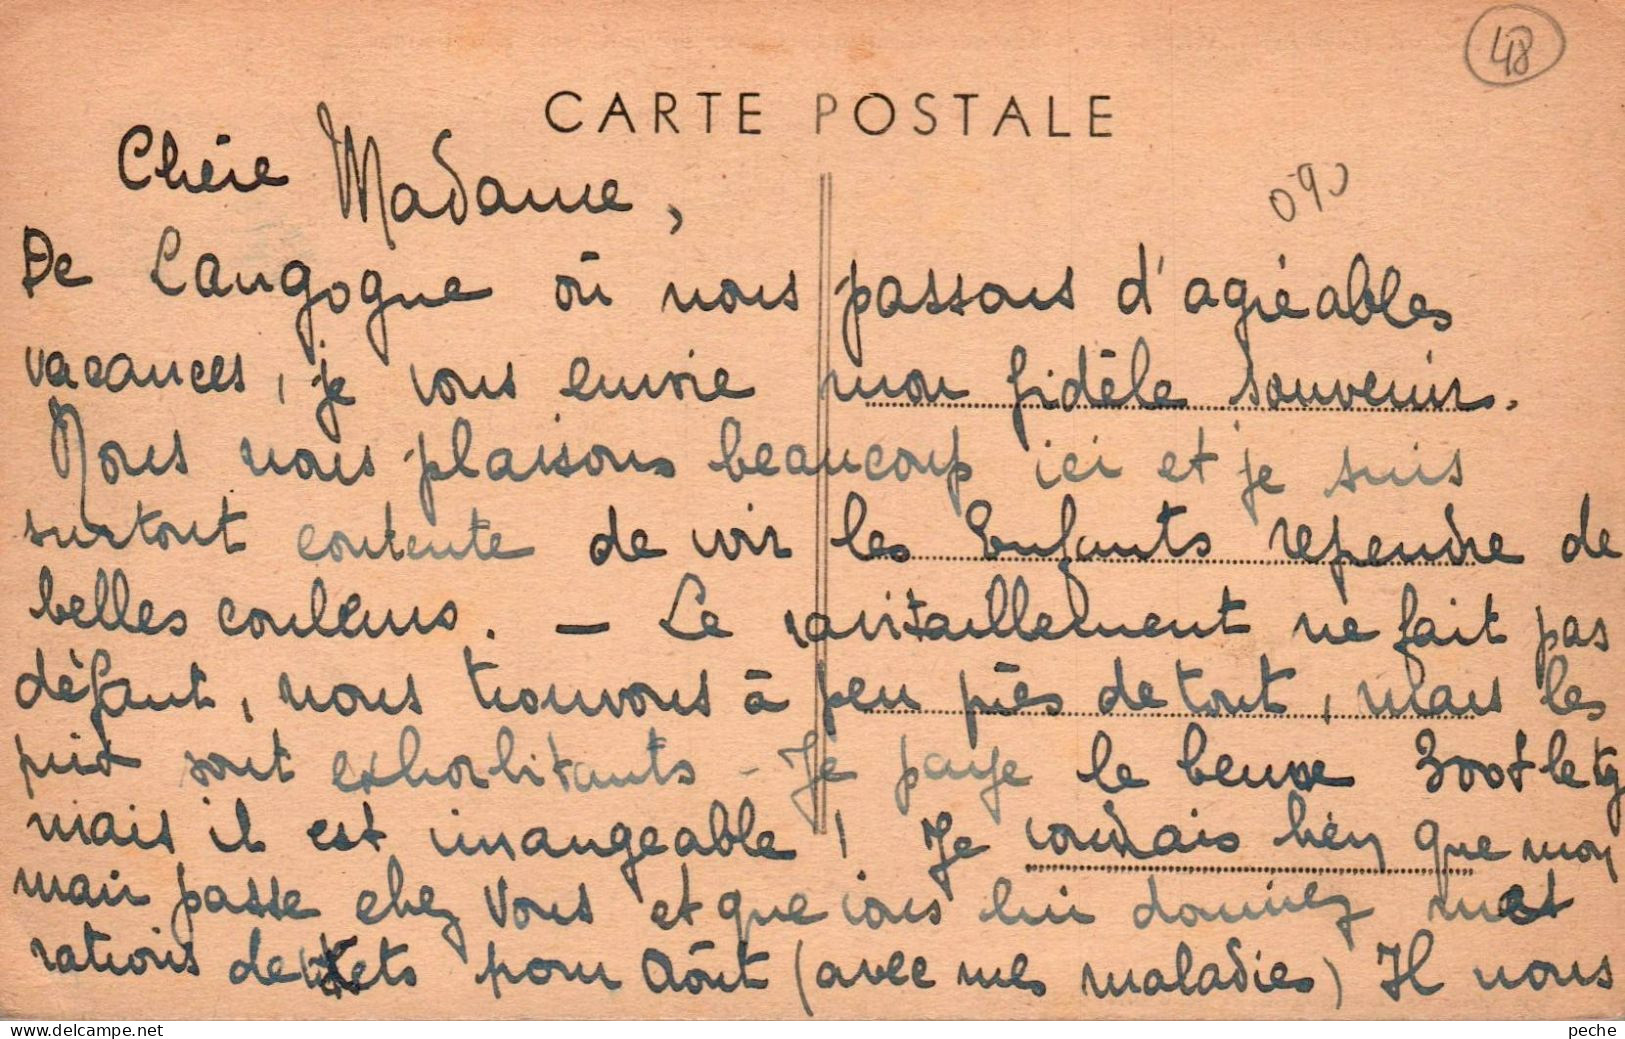 48
CARTE POSTALE
090
Chère Madame,
De Langogne où nous passons d'agréables
vacances, je vous envoie mon fidèle souvenir.
Nous nous plaisons beaucoup ici et je suis
surtout contente de voir les Enfants reprendre de
belles couleurs. — Le ravitaillement ne fait pas
défaut, nous trouvons à peu près de tout, mais les
prix sont exhorbitants - Je paye le beurre 300f le kg
mais il est immangeable ! Je voudrais bien que mon
mari passe chez vous et que vous lui donniez mes
rations de pour Août (avec mes maladies) Il nous
peche